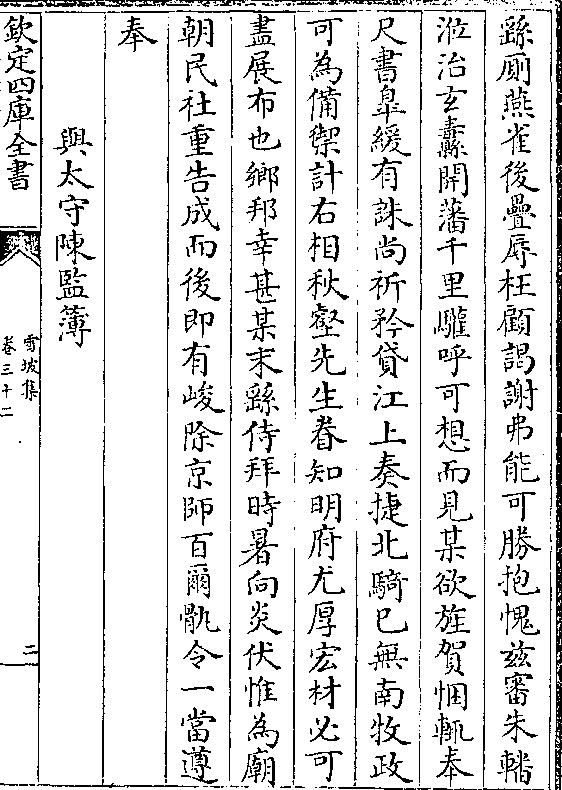 繇厠燕雀後疊辱枉顧謁謝弗能可勝抱愧兹審朱轓
涖治玄纛開藩千里驩呼可想而見某欲旌賀悃輒奉
尺書辠緩有誅尚祈矜貸江上奏捷北騎已無南牧政
可為備禦計右相秋壑先生眷知明府尤厚宏材必可
盡展布也鄉邦幸甚某末繇侍拜時暑向炎伏惟為廟
朝民社重告成而後即有峻除京師百爾骩令一當遵
奉
與太守陳監簿
欽定四庫全書
雪坡集
卷三十二
二